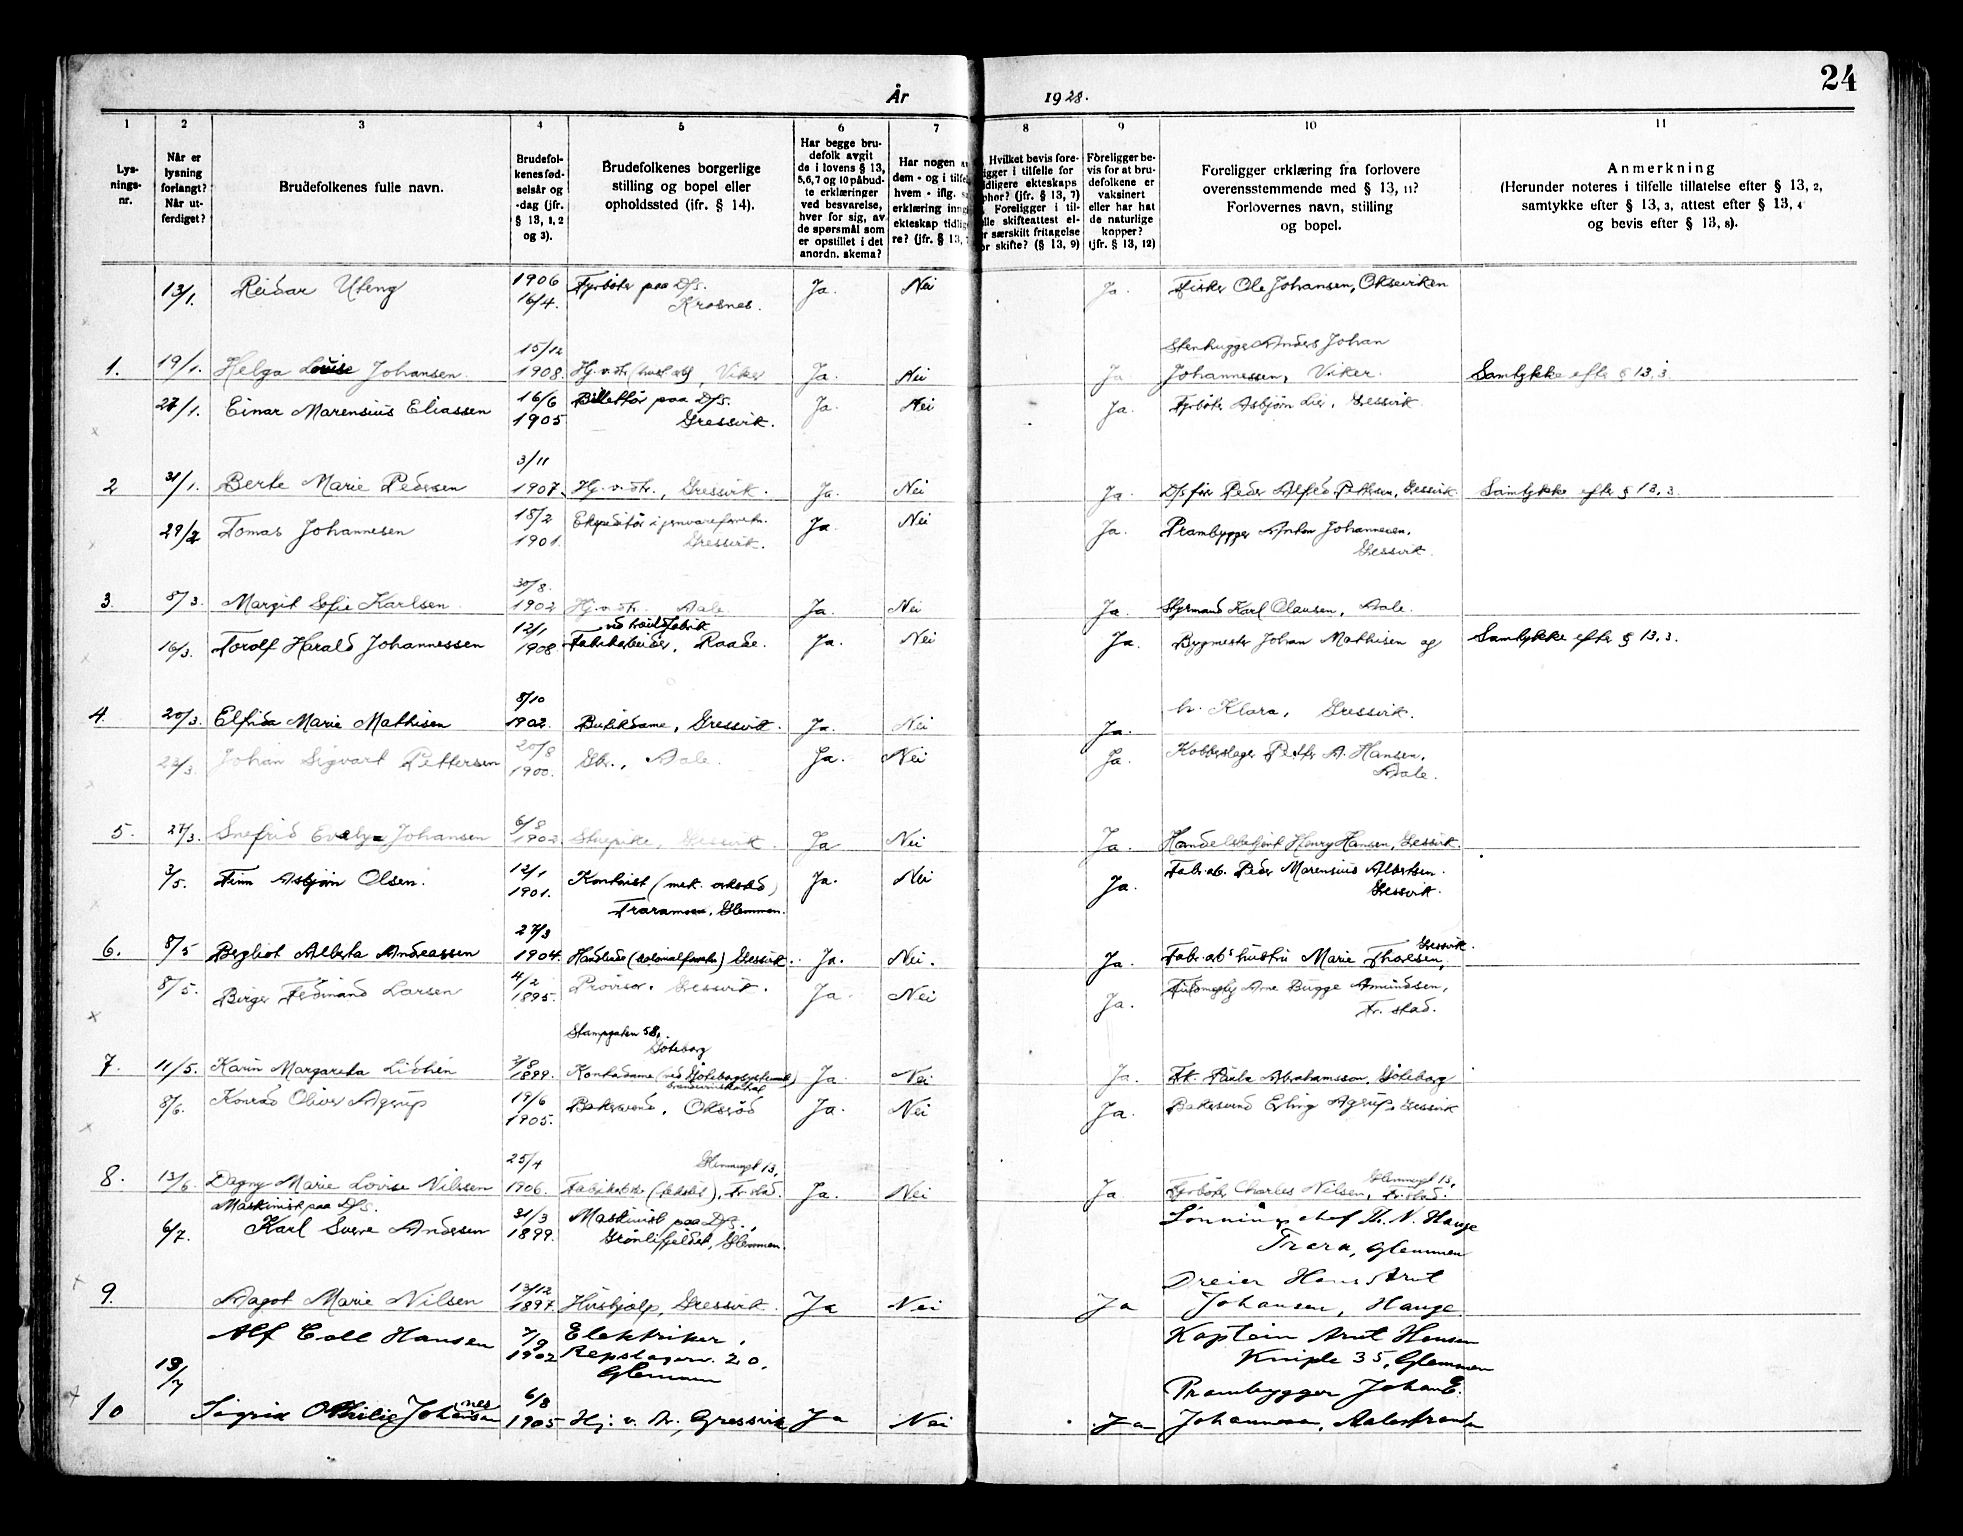 24
År 1928.
1 2 3 4 5 6 7 8 9 10 11
Lys-
nings-
nr.
Når er
lysning
forlangt?
Når ut-
ferdiget?
Brudefolkenes fulle navn.
Brudefol-
kenes fød-
selsår og
-dag (jfr.
§ 13, 1, 2
og 3).
Brudefolkenes borgerlige
stilling og bopel eller
opholdssted (ifr. § 14).
Har begge bru-
defolk avgit
de i lovens § 13,
5,6,7 og 10 påbud-
te erklæringer
ved besvarelse,
hver for sig, av
de spørsmål som
er opstillet i det
anordn. skema?
Har nogen
dem - og i tilfel
hvem - iflg.
erklæring inng
ekteskap tidlig
re? (jfr. § 13,
Hvilket bevis fore-
ligger i tilfelle for
idligere ekteskaps
phør? (jfr. § 13, 7)
Foreligger i til-
elle skifteattest el-
r særskilt fritagelse
or skifte? (§ 13, 9)
Foreligger be-
vis for at bru-
defolkene er
vaksinert
eller har hat
de naturlige
kopper?
(jfr. § 13, 12)
Foreligger erklæring fra forlovere
overensstemmende med § 13, 11?
Forlovernes navn, stilling
og bopel.
Anmerkning
(Herunder noteres i tilfelle tillatelse efter § 13, 2,
samtykke efter § 13, 3, attest efter § 13, 4
og bevis efter § 13, 8).
13/1. Reidar Uteng 1906 16/4. Fyrbøter paa D/S. Krosnes. Ja. Nei Ja. Fisker Ole Johansen, Oksviken
1. 19/1. Helga Louise Johansen 15/12 1908. Hj. v. str. , Viker Ja. Nei Ja Stenhugger Anders Johan
Johannessen, Viker. Samtykke efter § 13, 3
27/1. Einar Marensius Eliassen 16/6 1905 Billettør paa D/S. Gressvik. Ja. Nei Ja. Fyrbøter Asbjørn Lier, Gressvik.
2 31/1. Berte Marie Pedersen 3/11 1907. Hj. v. str., Gressvik. Ja. Nei Ja. D/S fører Peder Alfred Pettersen, Gressvik Samtykke efter § 13, 3.
29/2 Tomas Johannesen 18/2 1901. Ekspeditør i jernvareforretn. Gressvik. Ja. Nei Ja. Prambygger Anton Johannesen,
Gressvik.
3. 8/3. Margit Sofie Karlsen 30/8. 1902 Hj. v. str. Aale. Ja. Nei Ja. Styrmand Karl Olausen, Aale.
16/3. Torolf Harald Johannessen 12/1 1908. Fabrikarbeider, Raade. Ja. Nei Ja. Bygmester Johan Mathisen og Samtykke efter § 13, 3.
4. 20/3. Elfrida Marie Mathisen 8/10 1902. Butikdame, Gressvik. Ja. Nei Ja. Klara, Gressvik.
22/3. Johan Sigvart Pettersen 20/8 1900. Gbr., Aale. Ja. Nei Ja. Kobberslager Petter A. Hansen,
Aale.
5. 27/3. Snefrid Evelyn Johansen 6/8 1902 , Gressvik. Ja Nei Ja. Handelsbetjent Henry Hansen, Gressvik.
3/5. Finn Asbjørn Olsen. 12/1 1901. Kontorist (mek. verksted)
Traramoen, Glemmen. Ja. Nei Ja. Fabr. arb. Peder Marensius Albertsen
Gressvik.
6. 8/5 Bergliot Alberta Andreassen 27/3 1904. (kolonialforretn.) Gressvik. Ja. Nei. Ja. Fabr. arb's hustru Marie Thorlsen, Gressvik.
8/5. Birger Ferdinand Larsen 4/2 1895. Provisor. Gressvik. Ja. Nei Ja. Arne Bugge Amundsen,
Fr. stad.
7. 11/5. Karin Margareta Lidhén 3/8 1899. Stampgatan 58,
Göteborg
Kontordame (ved Göteborgsystemets) Ja. Nei Ja. Frk. Paula Abrahamsson, Göteborg
8/6. Konrad Oliver Agerup 19/6 1905. Bakersvend, Oksrød Ja. Nei Ja. Bakersvend Erling Agerup, Gressvik
8. 13/6. Dagny Marie Lovise Nilssen 25/4 1906. Glemmengt. 13,
Fabrikarb. (tekstil), Fr. stad. Ja. Nei Ja. Fyrbøter Charles Nilsen, Glemmengt. 13, Fr. stad.
Maskinist paa D/S.
6/7. Karl Sverre Andersen 31/3 1899. Maskinist paa D/S.,
Grønlifjeldet, Glemmen. Lønningschef Th. N. Hauge
Trara, Glemmen
9. Aagot Marie Nilsen 13/12 1897. Hushjælp, Gressvik. Ja Nei Ja Dreier Hans Arnt
Johansen, Hauge
Alf Coll Hansen 7/9 1902 Elektriker.
Repslagerv. 20.
Glemmen Kaptein Arnt Hansen
Kniple 35, Glemmen
10 13/7 Sigrid Othilie Johannesen 6/8 1905 Hj. v. str., Gressvik Ja Nei Ja Prambygger Johan E.
Johannesen, Aalestranden